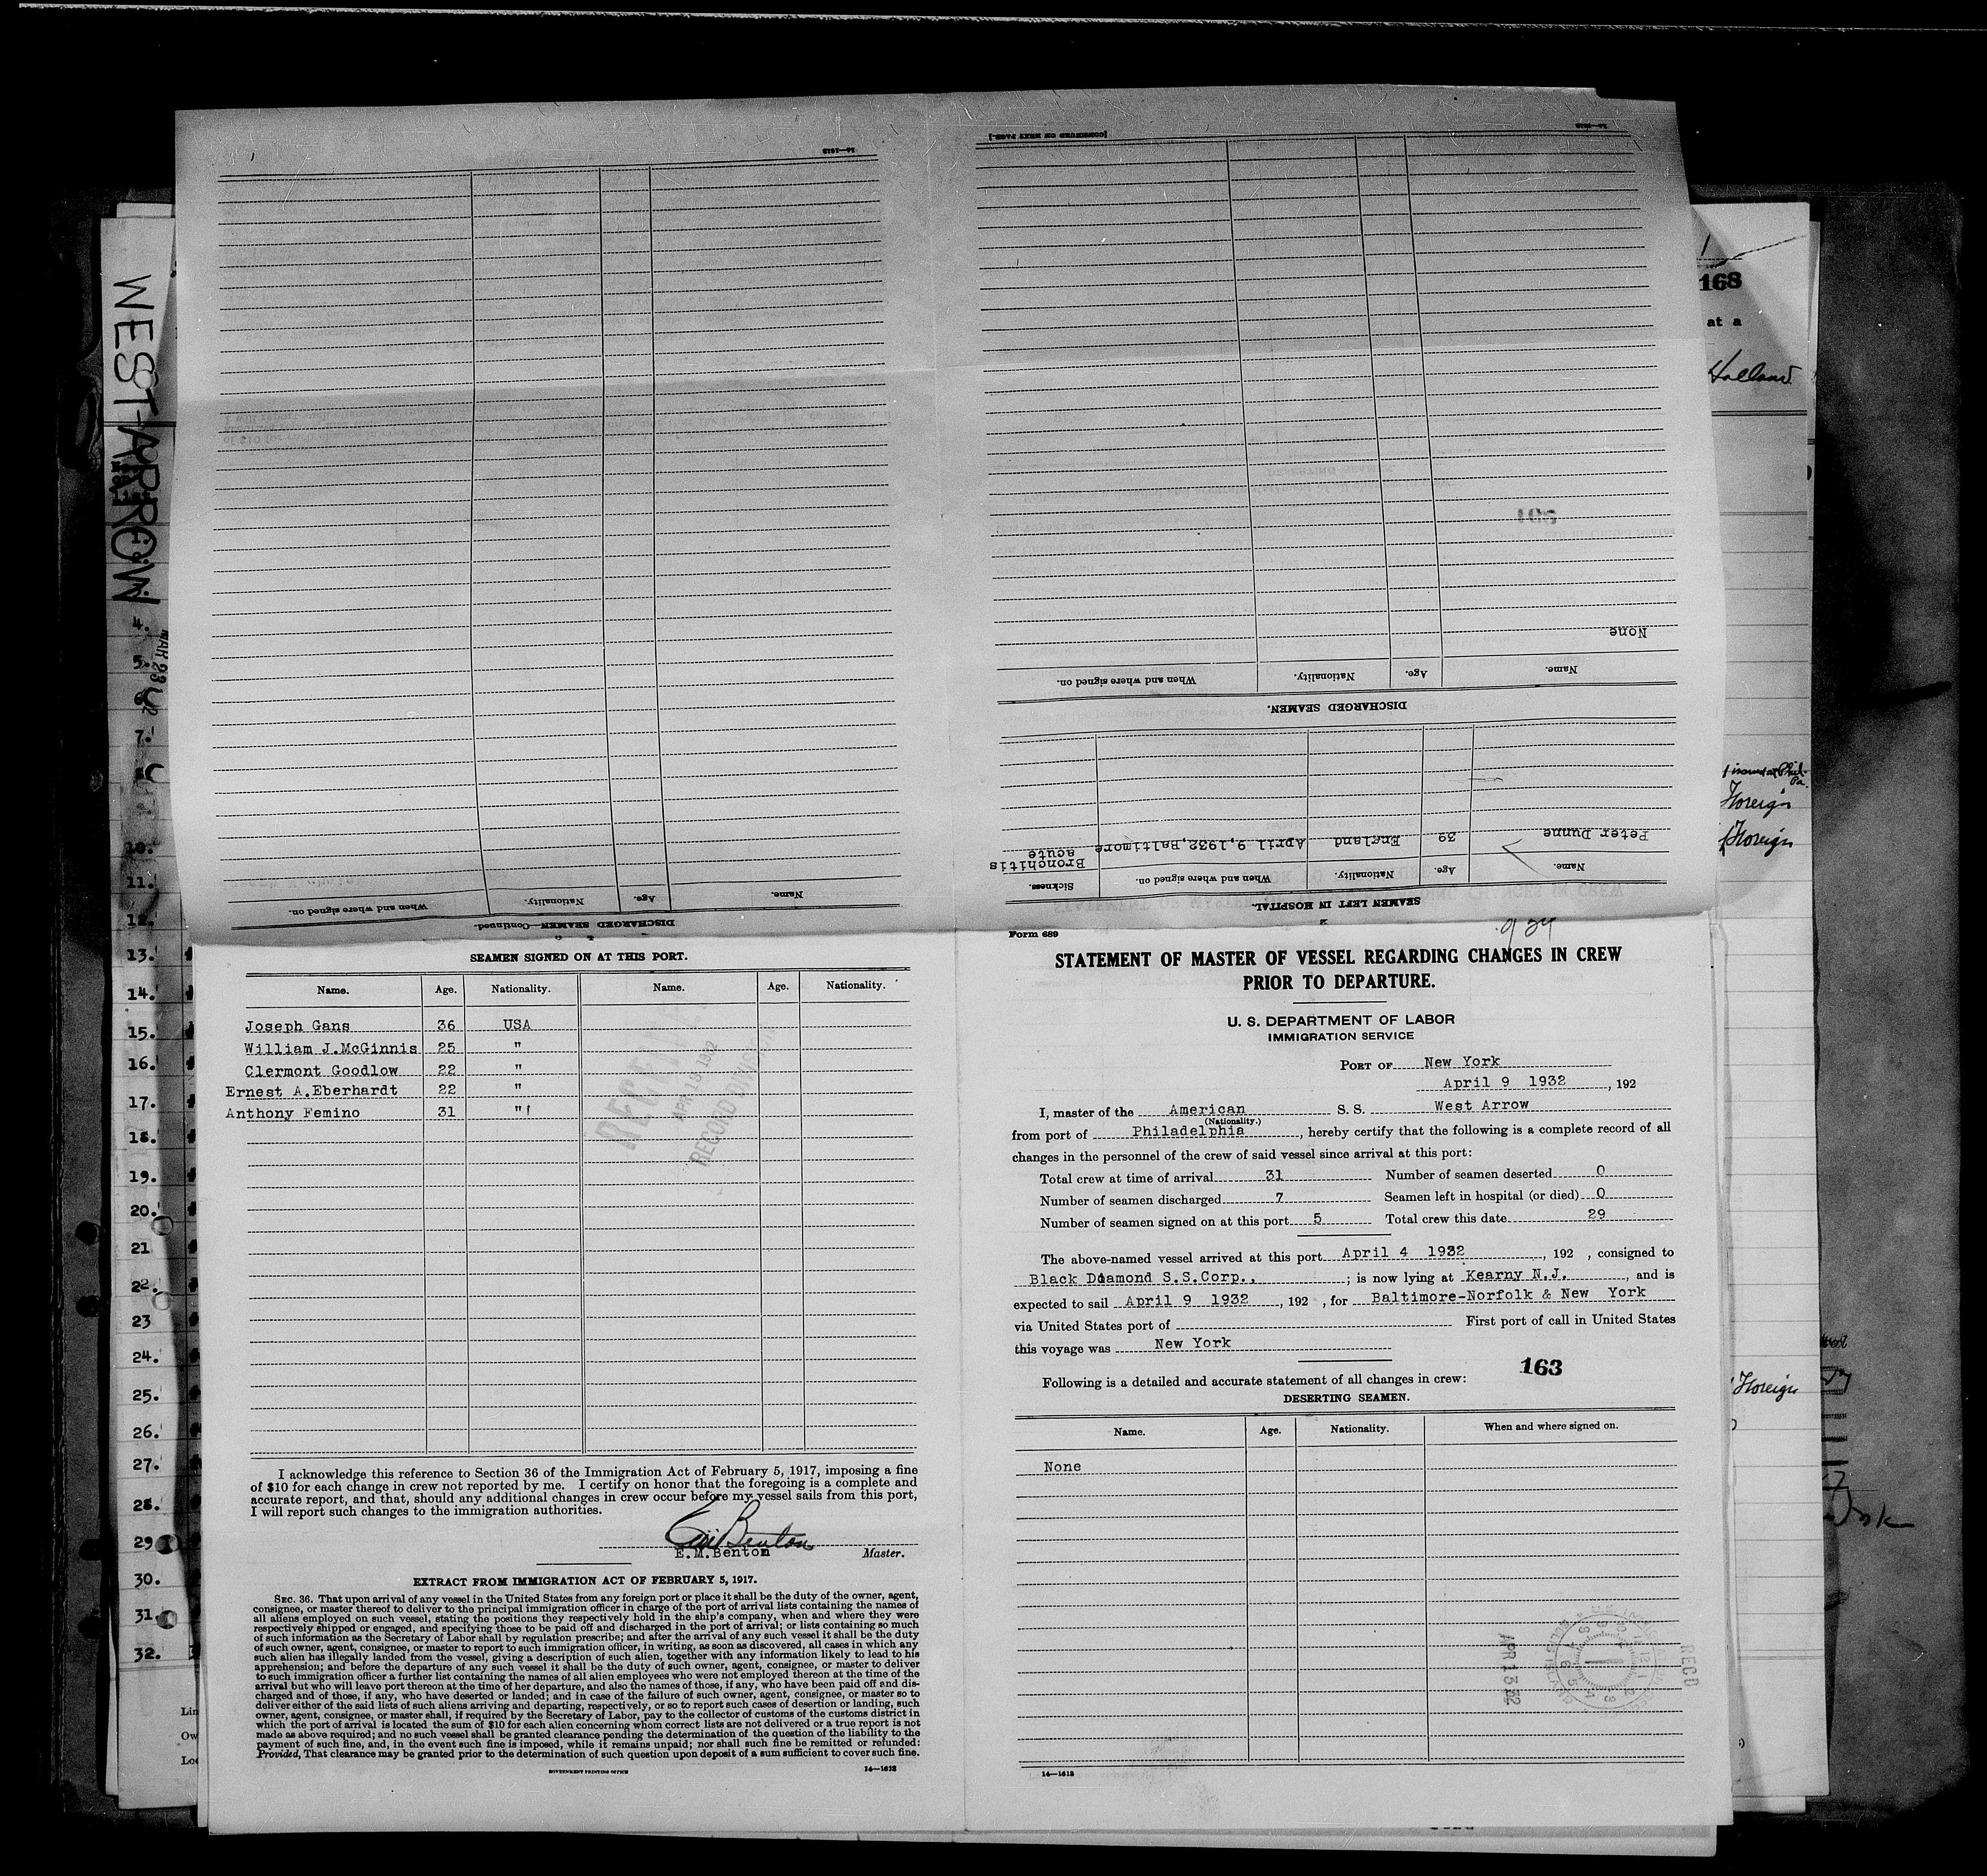 14—1613
[CONTINUED ON NEXT PAGE.]
None
Name.
Age.
Nationality.
When and where signed on.
DISCHARGED SEAMEN.
Peter Dunne 39 England April 9,1932,Baltimore Bronchitis acute
Name. Age. Nationality. When and where signed on. Sickness.
SEAMEN LEFT IN HOSPITAL.
2
Name. Age. Nationality. When and where signed on.
DISCHARGED SEAMEN—Continued.
WEST ARROW
MAR 23
168
at a
Holland
Foreign
Foreign
Foreign
4.
5.
7.
10.
11.
12.
13.
14.
15.
16.
17.
18.
19.
20.
21
22.
23
24.
25.
26.
27.
28.
29
30.
31.
32.
SEAMEN SIGNED ON AT THIS PORT.
Name. Age. Nationality. Name. Age. Nationality.
Joseph Gans 36 USA
William J.McGinnis 25 "
Clermont Goodlow 22 "
Ernest A.Eberhardt 22 "
Anthony Femino 31 "
RECEIVED
APR 16 1932
RECORD DIVISION
I acknowledge this reference to Section 36 of the Immigration Act of February 5, 1917, imposing a fine
of $10 for each change in crew not reported by me. I certify on honor that the foregoing is a complete and
accurate report, and that, should any additional changes in crew occur before my vessel sails from this port,
I will report such changes to the immigration authorities.
E.M.Benton Master.
EXTRACT FROM IMMIGRATION ACT OF FEBRUARY 5, 1917.
SEC. 36. That upon arrival of any vessel in the United States from any foreign port or place it shall be the duty of the owner, agent,
consignee, or master thereof to deliver to the principal immigration officer in charge of the port of arrival lists containing the names of
all aliens employed on such vessel, stating the positions they respectively hold in the ship's company, when and where they were
respectively shipped or engaged, and specifying those to be paid off and discharged in the port of arrival; or lists containing so much
of such information as the Secretary of Labor shall by regulation prescribe; and after the arrival of any such vessel it shall be the duty
of such owner, agent, consignee, or master to report to such immigration officer, in writing, as soon as discovered, all cases in which any
such alien has illegally landed from the vessel, giving a description of such alien, together with any information likely to lead to his
apprehension; and before the departure of any such vessel it shall be the duty of such owner, agent, consignee, or master to deliver
to such immigration officer a further list containing the names of all alien employees who were not employed thereon at the time of the
arrival but who will leave port thereon at the time of her departure, and also the names of those, if any, who have been paid off and dis-
charged and of those, if any, who have deserted or landed; and in case of the failure of such owner, agent, consignee, or master so to
deliver either of the said lists of such aliens arriving and departing, respectively, or so to report such cases of desertion or landing, such
owner, agent, consignee, or master shall, if required by the Secretary of Labor, pay to the collector of customs of the customs district in
which the port of arrival is located the sum of $10 for each alien concerning whom correct lists are not delivered or a true report is not
made as above required; and no such vessel shall be granted clearance pending the determination of the question of the liability to the
payment of such fine, and, in the event such fine is imposed, while it remains unpaid; nor shall such fine be remitted or refunded:
Provided, That clearance may be granted prior to the determination of such question upon deposit of a sum sufficient to cover such fine.
GOVERNMENT PRINTING OFFICE 14—1613
Form 689
STATEMENT OF MASTER OF VESSEL REGARDING CHANGES IN CREW
PRIOR TO DEPARTURE.
U. S. DEPARTMENT OF LABOR
IMMIGRATION SERVICE
PORT OF New York
April 9 1932, 192
I, master of the American S. S. West Arrow
(Nationality.)
from port of Philadelphia, hereby certify that the following is a complete record of all
changes in the personnel of the crew of said vessel since arrival at this port:
Total crew at time of arrival 31 Number of seamen deserted 0
Number of seamen discharged 7 Seamen left in hospital (or died) 0
Number of seamen signed on at this port 5 Total crew this date 29
The above-named vessel arrived at this port April 4 1932, 192 , consigned to
Black Diamond S.S.Corp., ; is now lying at Kearny N.J., and is
expected to sail April 9 1932, 192 , for Baltimore-Norfolk & New York
via United States port of First port of call in United States
this voyage was New York
163
Following is a detailed and accurate statement of all changes in crew:
DESERTING SEAMEN.
Name. Age. Nationality. When and where signed on.
None
APR 13 32
REC'D
14—1613